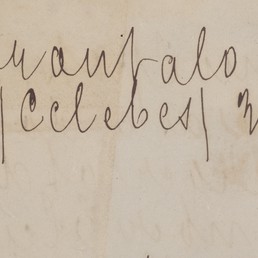 rontalo
/Celebes/